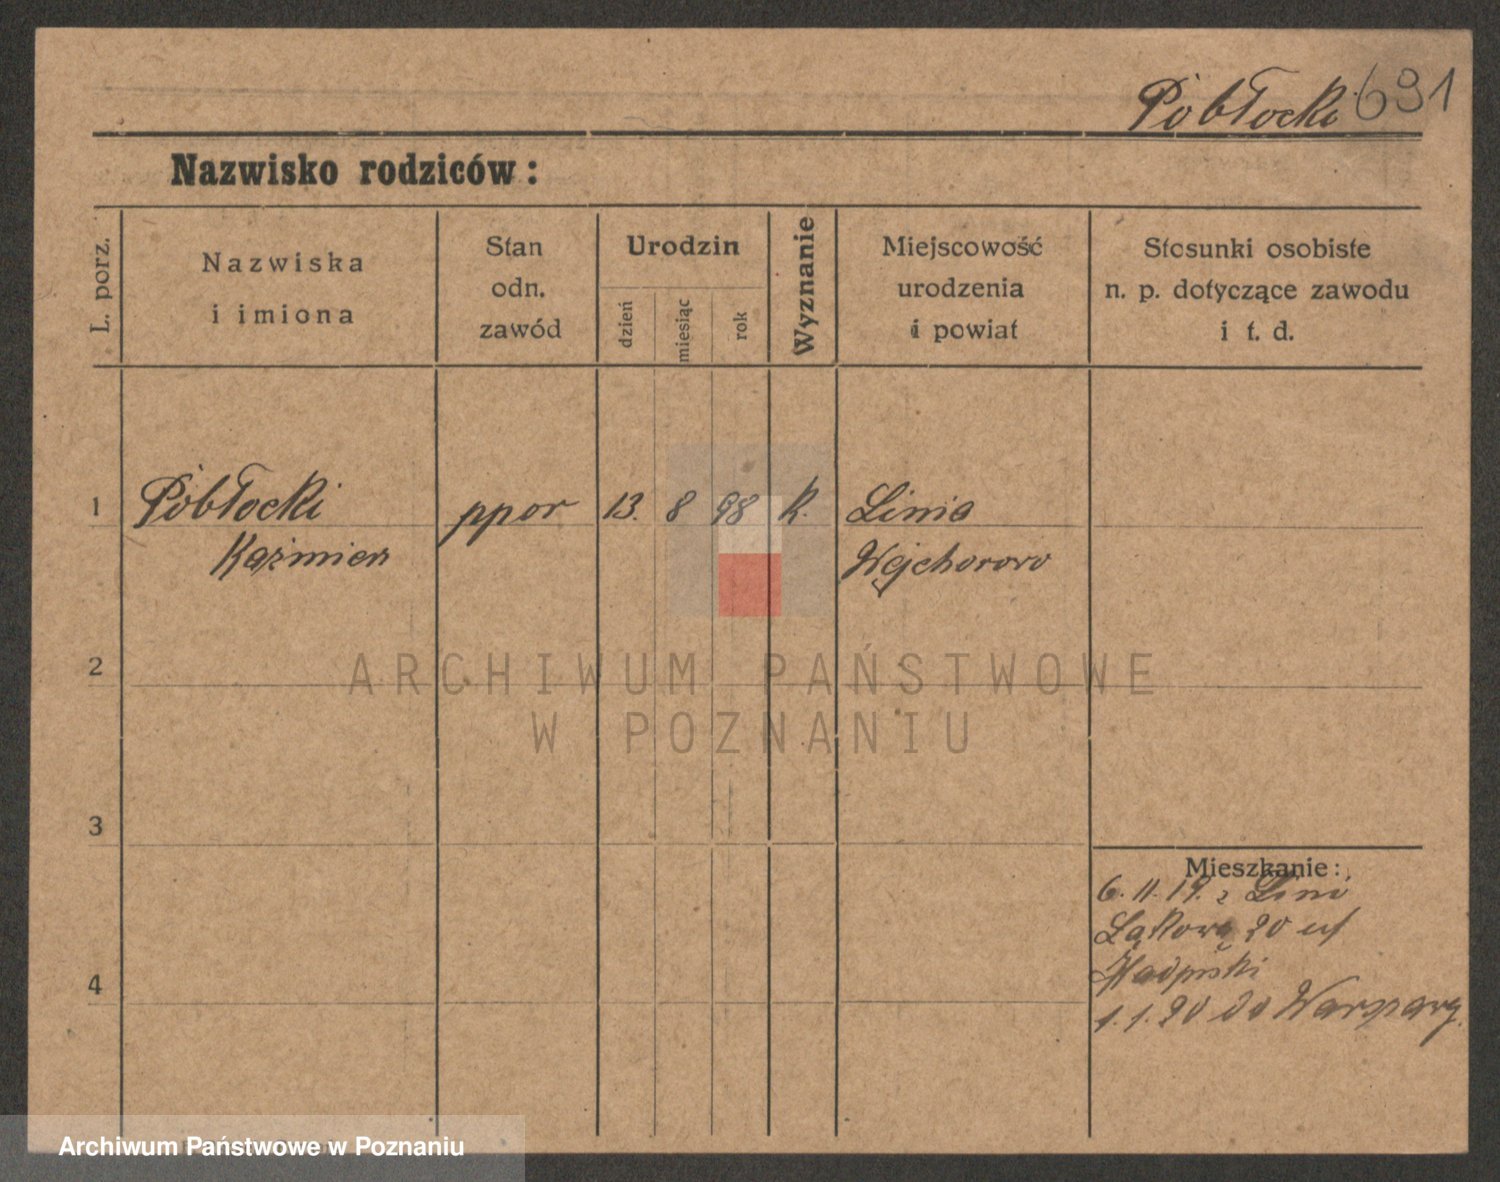 Pobłocki 691
Nazwisko rodziców:
L. porz.
Nazwiska
i imiona
Stan
odn.
zawód
Urodzin
dzień
miesiąc
rok
Wyznanie
Miejscowość
urodzenia
i powiat
Stosunki osobiste
n. p. dotyczące zawodu
i t. d.
1
Pobłocki
Kaźmierz
ppor
13. 8 98 k.
Linia
Wejherowo
2
ARCHIWUM PAŃSTWOWE
W POZNANIU
3
Mieszkanie:
6. 11. 19. z Lini
Łąkowa 20 u
4
1. 1. 20 do Warszawy.
Archiwum Państwowe w Poznaniu